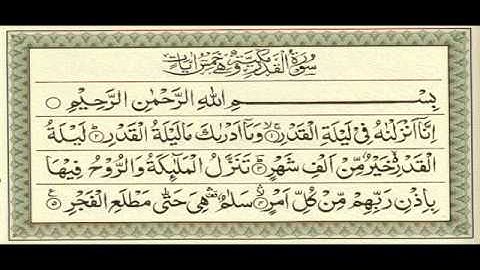 سُوْرَةُ الْقَدْرِ مَكِّيَّةٌ وَّهِيَ خَمْسُ اٰيَاتٍ
بِسْمِ اللهِ الرَّحْمٰنِ الرَّحِيْمِ ○
اِنَّاۤ اَنْزَلْنٰهُ فِيْ لَيْلَةِ الْقَدْرِ ۝۱ وَمَاۤ اَدْرٰىكَ مَا لَيْلَةُ الْقَدْرِ ۝۲ لَيْلَةُ
الْقَدْرِ خَيْرٌ مِّنْ اَلْفِ شَهْرٍ ۝۳ تَنَزَّلُ الْمَلٰٓئِكَةُ وَالرُّوْحُ فِيْهَا
بِاِذْنِ رَبِّهِمْ مِّنْ كُلِّ اَمْرٍ ۝۴ سَلٰمٌ هِيَ حَتّٰى مَطْلَعِ الْفَجْرِ ۝۵